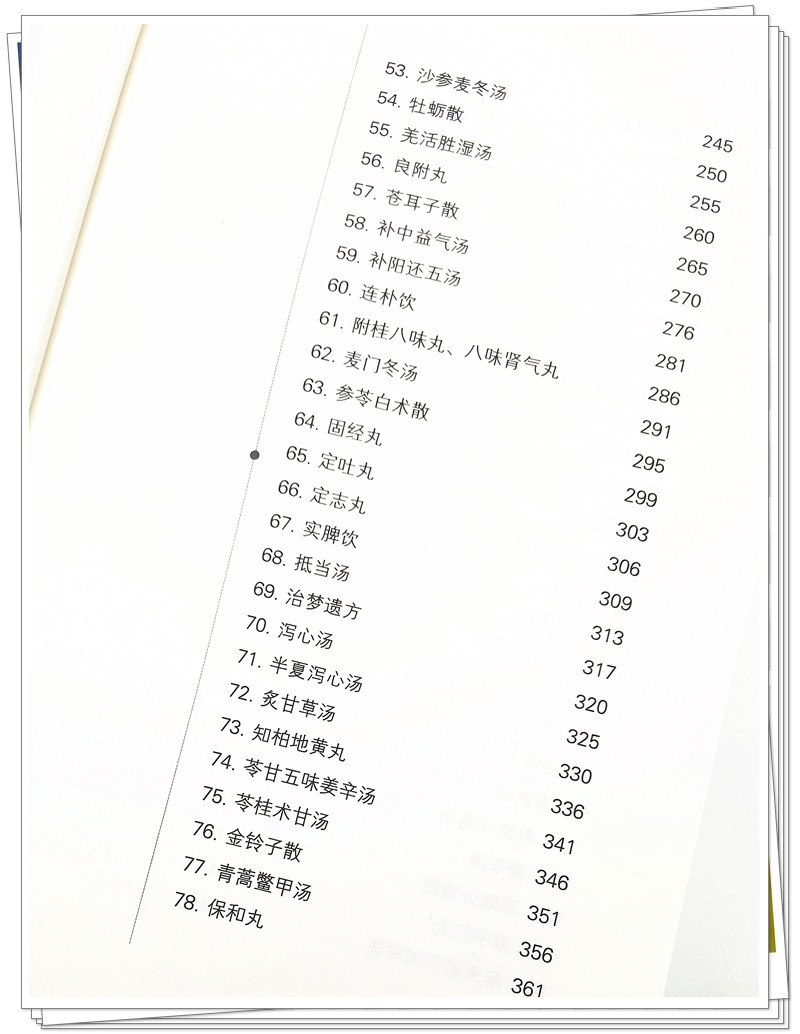 53. 沙参麦冬汤 245
54. 牡蛎散 250
55. 羌活胜湿汤 255
56. 良附丸 260
57. 苍耳子散 265
58. 补中益气汤 270
59. 补阳还五汤 276
60. 连朴饮 281
61. 附桂八味丸、八味肾气丸 286
62. 麦门冬汤 291
63. 参苓白术散 295
64. 固经丸 299
65. 定吐丸 303
66. 定志丸 306
67. 实脾饮 309
68. 抵当汤 313
69. 治梦遗方 317
70. 泻心汤 320
71. 半夏泻心汤 325
72. 炙甘草汤 330
73. 知柏地黄丸 336
74. 苓甘五味姜辛汤 341
75. 苓桂术甘汤 346
76. 金铃子散 351
77. 青蒿鳖甲汤 356
78. 保和丸 361